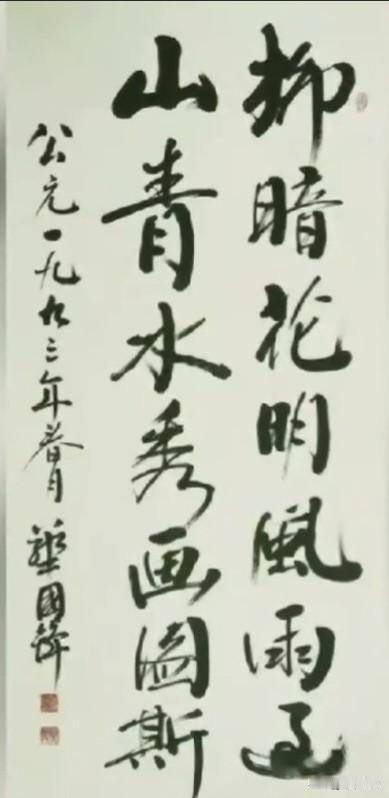 柳暗花明風雨過
山青水秀画圖斯
公元一九九三年春月 華國鋒